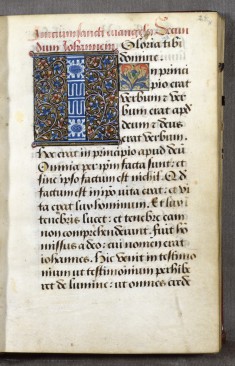 Inicium sancti euangelii Secun
dum Johannem. Gloria tibi
domine.
In princi
pio erat
verbum et ver
bum erat apd
deum et deus
erat verbum.
hoc erat in principio apud deū
Omnia per ipm facta sunt: et
sine ipso factum est nichil. Qd
factum est in ipo vita erat: et vi
ta erat lux hominum. Et lux ī
tenebris lucet: et tenebre eam
non comprehenderunt. Fuit ho
missus a deo: cui nomen erat
iohannes. Hic venit in testimo
nium ut testimonium perhibe
ret de lumine: ut omnes cred